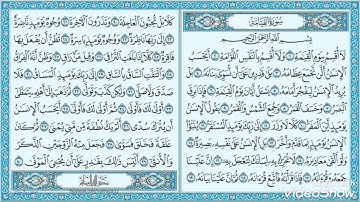 سُورَةُ القِيَامَةِ
بِسْمِ اللَّهِ الرَّحْمَنِ الرَّحِيمِ
لَا أُقْسِمُ بِيَوْمِ الْقِيَمَةِ ١ وَلَا أُقْسِمُ بِالنَّفْسِ اللَّوَّامَةِ ٢ أَيَحْسَبُ
الْإِنسَنُ أَلَّن نَّجْمَعَ عِظَامَهُ ٣ بَلَى قَدِرِينَ عَلَى أَن نُّسَوِّيَ
بَنَانَهُ ٤ بَلْ يُرِيدُ الْإِنسَنُ لِيَفْجُرَ أَمَامَهُ ٥ يَسْئَلُ أَيَّانَ يَوْمُ
الْقِيَمَةِ ٦ فَإِذَا بَرِقَ الْبَصَرُ ٧ وَخَسَفَ الْقَمَرُ ٨ وَجُمِعَ الشَّمْسُ وَالْقَمَرُ ٩ يَقُولُ الْإِنسَنُ
يَوْمَئِذٍ أَيْنَ الْمَفَرُّ ١٠ كَلَّا لَا وَزَرَ ١١ إِلَى رَبِّكَ يَوْمَئِذٍ الْمُسْتَقَرُّ ١٢ يُنَبَّؤُا الْإِنسَنُ
يَوْمَئِذٍ بِمَا قَدَّمَ وَأَخَّرَ ١٣ بَلِ الْإِنسَنُ عَلَى نَفْسِهِ بَصِيرَةٌ ١٤
وَلَوْ أَلْقَى مَعَاذِيرَهُ ١٥ لَا تُحَرِّكْ بِهِ لِسَانَكَ لِتَعْجَلَ بِهِ ١٦ إِنَّ عَلَيْنَا
جَمْعَهُ وَقُرْءَانَهُ ١٧ فَإِذَا قَرَأْنَهُ فَاتَّبِعْ قُرْءَانَهُ ١٨ ثُمَّ إِنَّ عَلَيْنَا بَيَانَهُ ١٩
كَلَّا بَلْ تُحِبُّونَ الْعَاجِلَةَ ٢٠ وَتَذَرُونَ الْآخِرَةَ ٢١ وُجُوهٌ يَوْمَئِذٍ نَّاضِرَةٌ ٢٢
إِلَى رَبِّهَا نَاظِرَةٌ ٢٣ وَوُجُوهٌ يَوْمَئِذٍ بَاسِرَةٌ ٢٤ تَظُنُّ أَن يُفْعَلَ بِهَا
فَاقِرَةٌ ٢٥ كَلَّا إِذَا بَلَغَتِ التَّرَاقِيَ ٢٦ وَقِيلَ مَنْ رَاقٍ ٢٧ وَظَنَّ أَنَّهُ الْفِرَاقُ ٢٨
وَالْتَفَّتِ السَّاقُ بِالسَّاقِ ٢٩ إِلَى رَبِّكَ يَوْمَئِذٍ الْمَسَاقُ ٣٠ فَلَا
صَدَّقَ وَلَا صَلَّى ٣١ وَلَكِن كَذَّبَ وَتَوَلَّى ٣٢ ثُمَّ ذَهَبَ إِلَى أَهْلِهِ يَتَمَطَّى
٣٣ أَوْلَى لَكَ فَأَوْلَى ٣٤ ثُمَّ أَوْلَى لَكَ فَأَوْلَى ٣٥ أَيَحْسَبُ الْإِنسَنُ
أَن يُتْرَكَ سُدًى ٣٦ أَلَمْ يَكُ نُطْفَةً مِّن مَّنِيٍّ يُمْنَى ٣٧ ثُمَّ كَانَ
عَلَقَةً فَخَلَقَ فَسَوَّى ٣٨ فَجَعَلَ مِنْهُ الزَّوْجَيْنِ الذَّكَرَ
وَالْأُنثَى ٣٩ أَلَيْسَ ذَلِكَ بِقَدِرٍ عَلَى أَن يُحْيِيَ الْمَوْتَى ٤٠
VideoShow